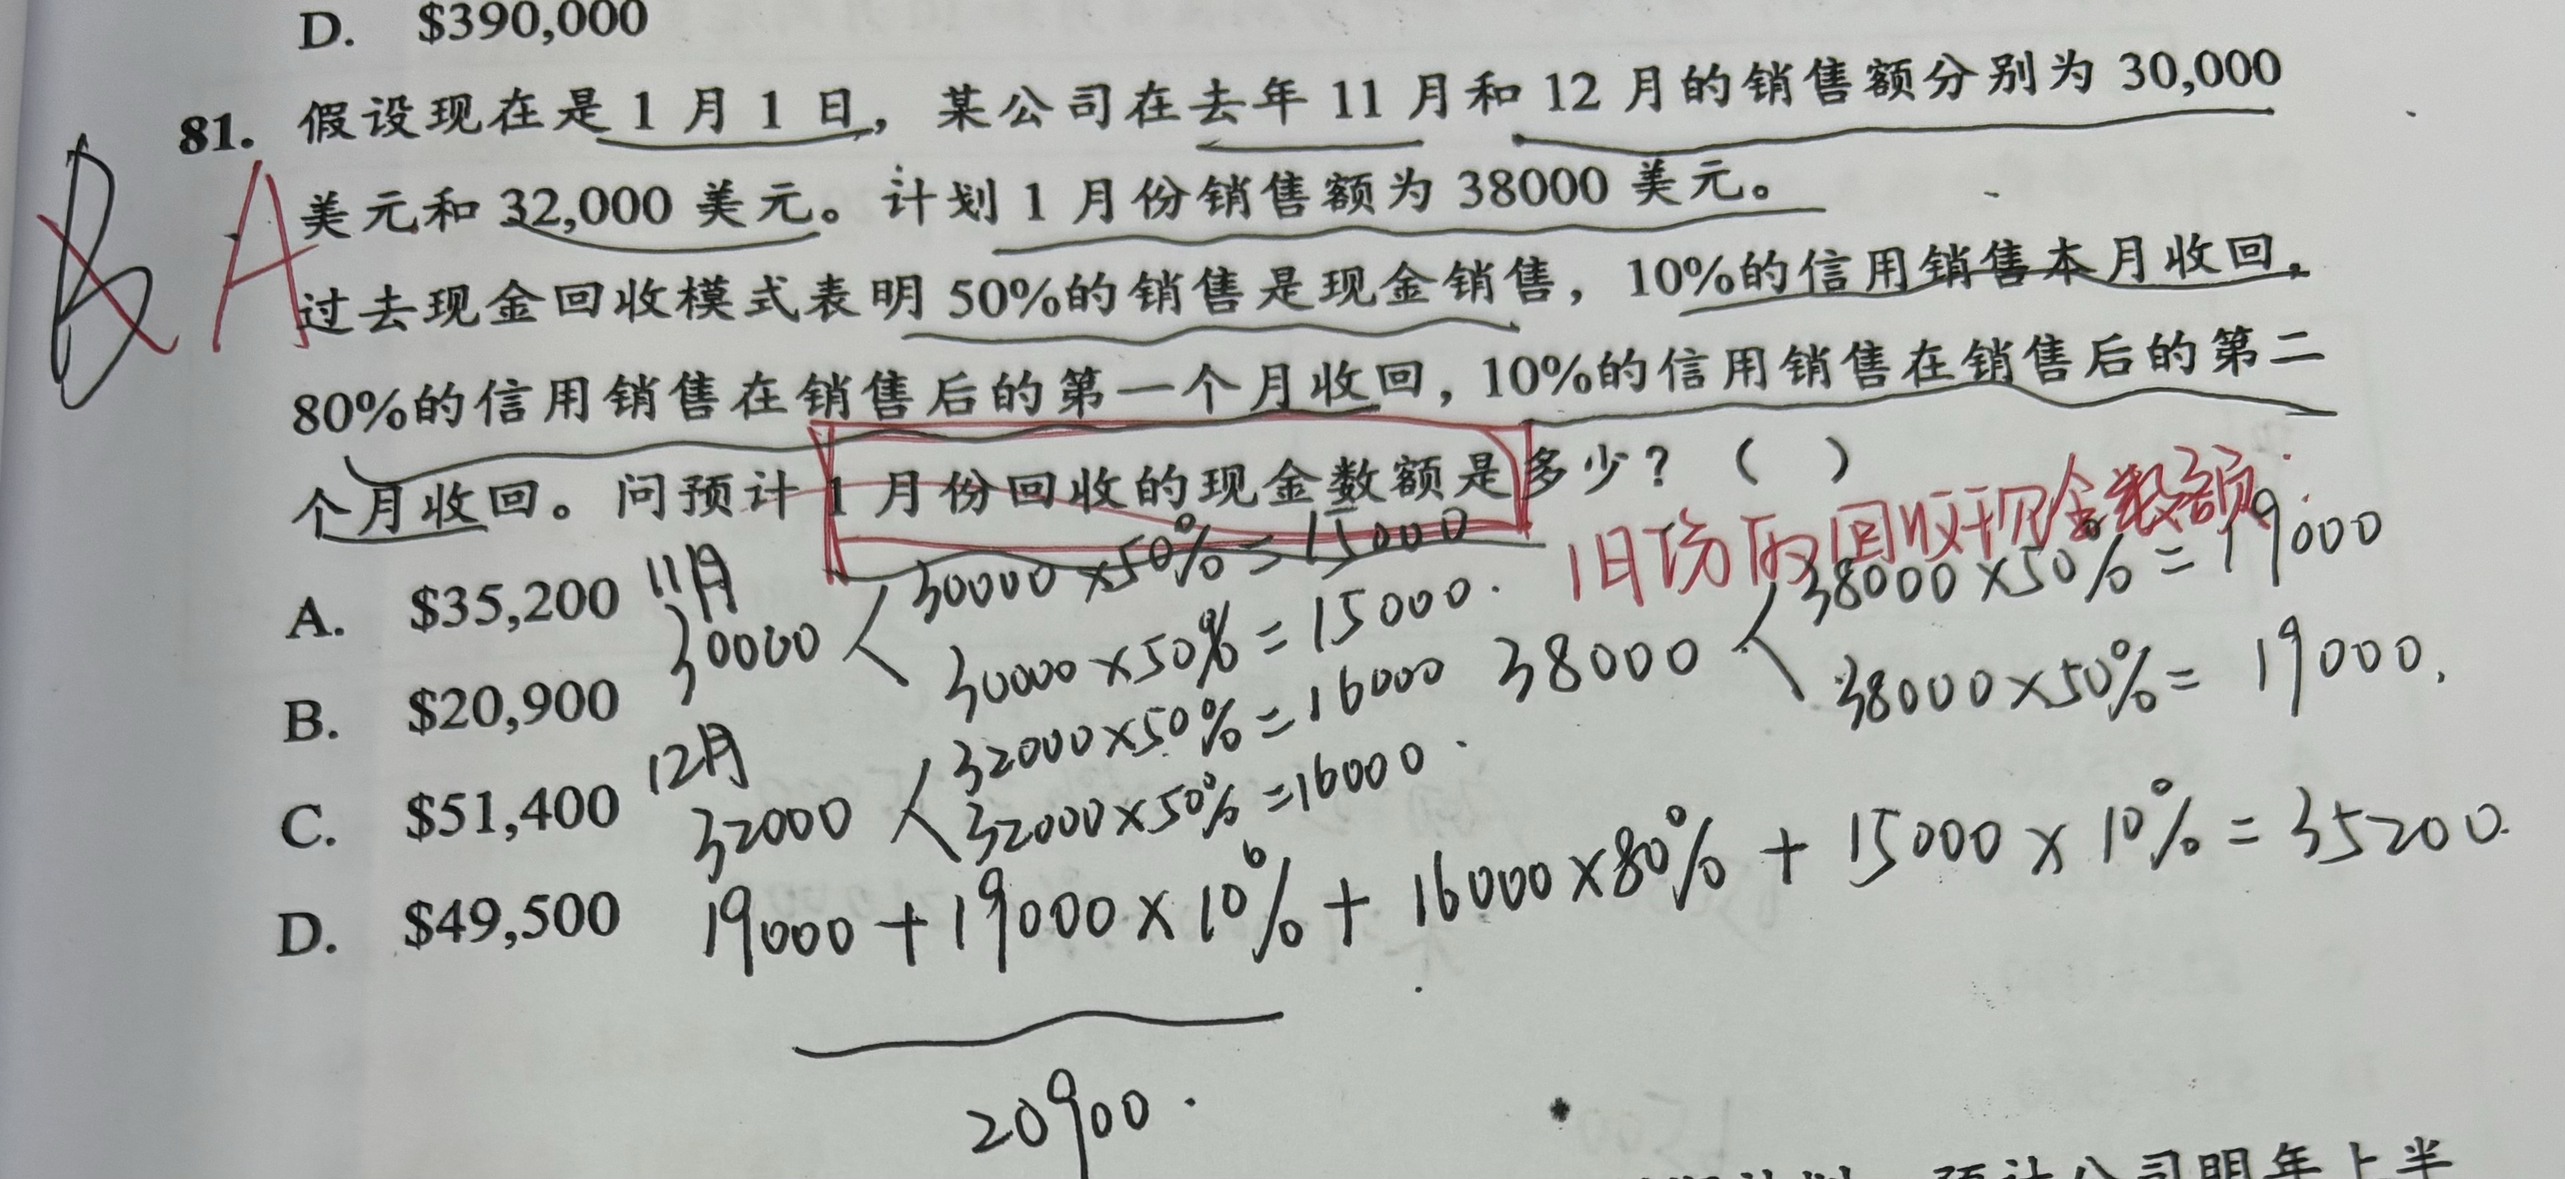 D. $390,000
81. 假设现在是1月1日，某公司在去年11月和12月的销售额分别为30,000
美元和32,000美元。计划1月份销售额为38000美元。
过去现金回收模式表明50%的销售是现金销售，10%的信用销售本月收回，
80%的信用销售在销售后的第一个月收回，10%的信用销售在销售后的第二
个月收回。问预计1月份回收的现金数额是多少？（ ）
B A
1月份的回收现金数额:
A. $35,200
B. $20,900
C. $51,400
D. $49,500
11月
30000
30000×50%=15000
30000×50%=15000.
12月
32000
32000×50%=16000
32000×50%=16000.
38000
38000×50%=19000
38000×50%=19000.
19000+19000×10%+16000×80%+15000×10%=35200.
20900.
预计公司明年上半